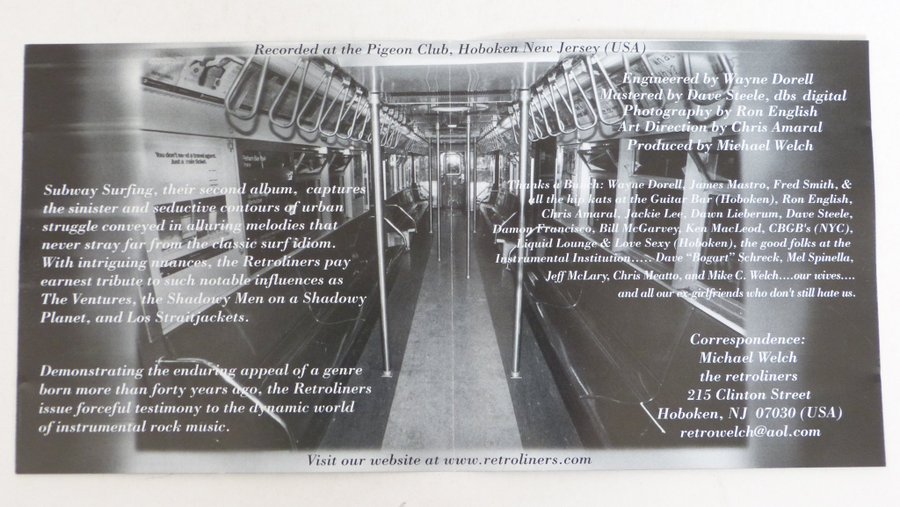 Recorded at the Pigeon Club, Hoboken New Jersey (USA)
Engineered by Wayne Dorell
Mastered by Dave Steele, dbs digital
Photography by Ron English
Art Direction by Chris Amaral
Produced by Michael Welch
You don't need a travel agent.
Just a train ticket.
Subway Surfing, their second album, captures
the sinister and seductive contours of urban
struggle conveyed in alluring melodies that
never stray far from the classic surf idiom.
With intriguing nuances, the Retroliners pay
earnest tribute to such notable influences as
The Ventures, the Shadowy Men on a Shadowy
Planet, and Los Straitjackets.
Demonstrating the enduring appeal of a genre
born more than forty years ago, the Retroliners
issue forceful testimony to the dynamic world
of instrumental rock music.
Thanks a Bunch: Wayne Dorell, James Mastro, Fred Smith, &
all the hip kats at the Guitar Bar (Hoboken), Ron English,
Chris Amaral, Jackie Lee, Dawn Lieberum, Dave Steele,
Damon Francisco, Bill McGarvey, Ken MacLeod, CBGB's (NYC),
Liquid Lounge & Love Sexy (Hoboken), the good folks at the
Instrumental Institution..... Dave "Bogart" Schreck, Mel Spinella,
Jeff McLary, Chris Meatto, and Mike C. Welch....our wives....
and all our ex-girlfriends who don't still hate us.
Correspondence:
Michael Welch
the retroliners
215 Clinton Street
Hoboken, NJ 07030 (USA)
retrowelch@aol.com
Visit our website at www.retroliners.com